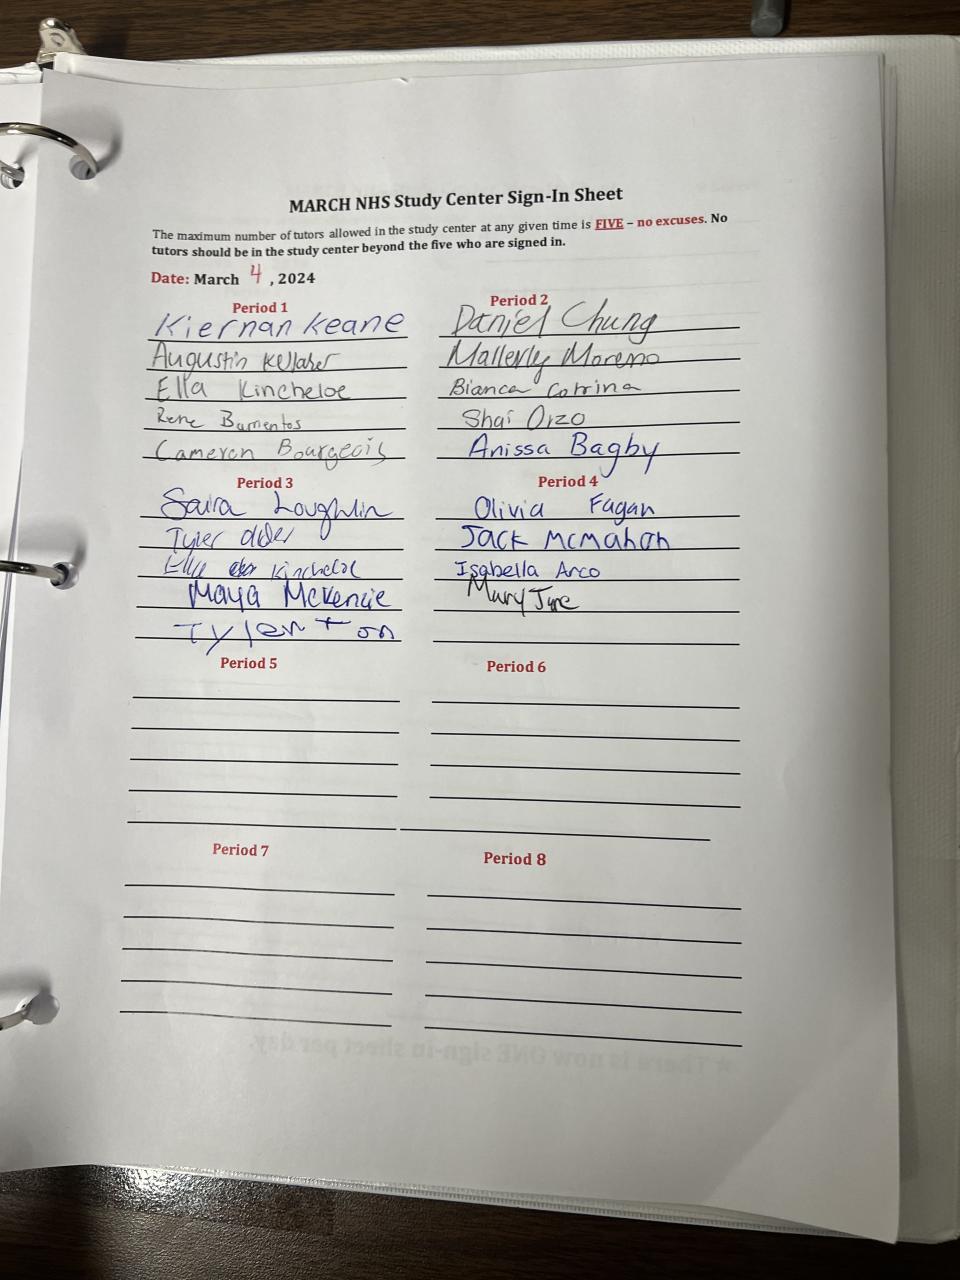 MARCH NHS Study Center Sign-In Sheet
The maximum number of tutors allowed in the study center at any given time is FIVE – no excuses. No
tutors should be in the study center beyond the five who are signed in.
Date: March 4, 2024
Period 1
Kiernan Keane
Augustin Kellaher
Ella Kincheloe
Rene Barrientos
Cameron Bourgeois
Period 2
Daniel Chung
Mallerly Moreno
Bianca Cotrina
Shai Orzo
Anissa Bagby
Period 3
Saira Loughlin
Tyler
Kincheloe
Maya McKenzie
Tyler
Period 4
Olivia Fagan
Jack McMahon
Isabella Arco
Mary
Period 5
Period 6
Period 7
Period 8
★ There is now ONE sign-in sheet per day.